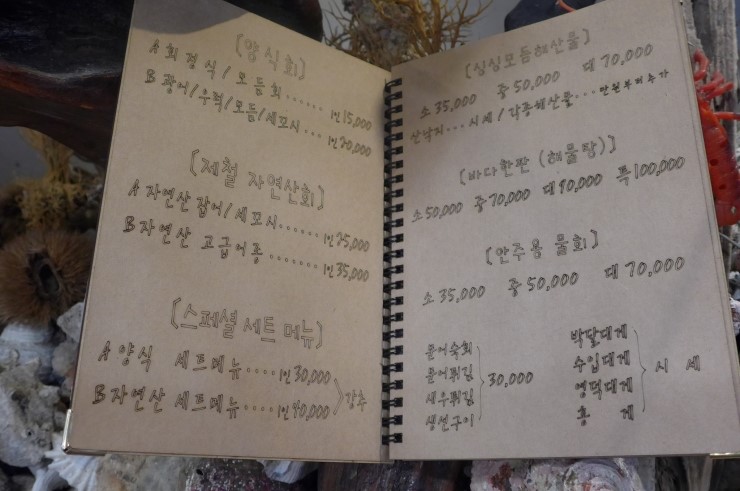 [양식회]
A 회정식/모듬회...... 1인 15,000
B 광어/우럭/모듬/세꼬시... 1인 20,000
[제철 자연산회]
A 자연산 잡어/세꼬시...... 1인 25,000
B 자연산 고급어종...... 1인 35,000
[스페셜 세트 메뉴]
A 양식 세트메뉴.... 1인 30,000
B 자연산 세트메뉴.... 1인 40,000 강추
[싱싱모듬해산물]
소 35,000 중 50,000 대 70,000
산낙지... 시세/각종해산물... 만원부터추가
[바다한판 (해물탕)]
소 50,000 중 70,000 대 90,000 특 100,000
[안주용 물회]
소 35,000 중 50,000 대 70,000
문어숙회
문어튀김
새우튀김
생선구이
30,000
박달대게
수입대게
영덕대게
홍 게
시 세